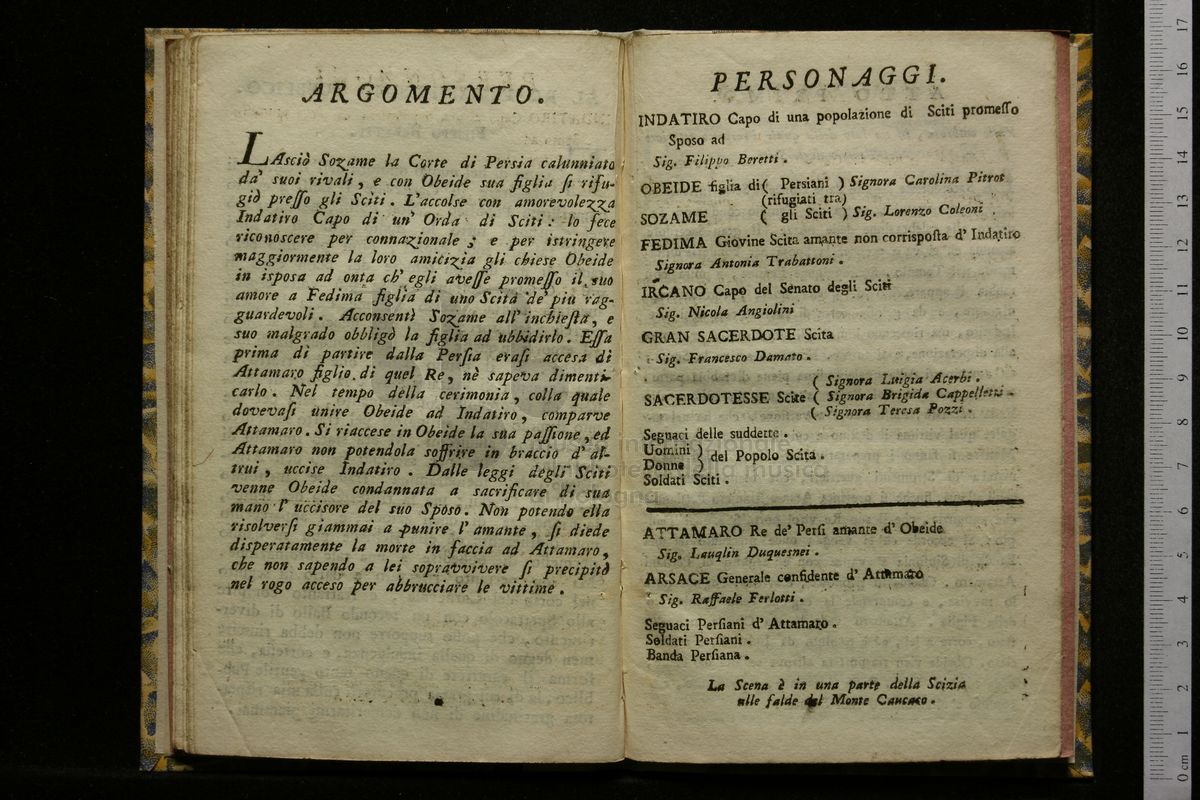 ARGOMENTO.
LAsciò Sozame la Corte di Persia calunniato
da' suoi rivali, e con Obeide sua figlia ſi rifu-
giò preſſo gli Sciti. L'accolse con amorevolezza
Indatiro Capo di un' Orda di Sciti: lo fece
riconoscere per connazionale; e per istringere
maggiormente la loro amicizia gli chiese Obeide
in isposa ad onta ch' egli aveſſe promeſſo il suo
amore a Fedima figlia di uno Scita de' più rag-
guardevoli. Acconsentì Sozame all' inchieſta, e
suo malgrado obbligò la figlia ad ubbidirlo. Eſſa
prima di partire dalla Perſia eraſi accesa di
Attamaro figlio di quel Re, nè sapeva dimenti-
carlo. Nel tempo della cerimonia, colla quale
dovevaſi unire Obeide ad Indatiro, comparve
Attamaro. Si riaccese in Obeide la sua paſſione, ed
Attamaro non potendola soffrire in braccio d' al-
trui, uccise Indatiro. Dalle leggi degli Sciti
venne Obeide condannata a sacrificare di sua
mano l' uccisore del suo Sposo. Non potendo ella
risolverſi giammai a punire l' amante, ſi diede
disperatamente la morte in faccia ad Attamaro,
che non sapendo a lei sopravvivere ſi precipitò
nel rogo acceso per abbrucciare le vittime.
PERSONAGGI.
INDATIRO Capo di una popolazione di Sciti promeſſo
Sposo ad
Sig. Filippo Beretti.
OBEIDE figlia di ( Persiani ) Signora Carolina Pitrot
(rifugiati tra)
SOZAME ( gli Sciti ) Sig. Lorenzo Coleoni.
FEDIMA Giovine Scita amante non corrisposta d' Indatiro
Signora Antonia Trabattoni.
IRCANO Capo del Senato degli Sciti
Sig. Nicola Angiolini
GRAN SACERDOTE Scita
Sig. Francesco Damato.
( Signora Luigia Acerbi.
SACERDOTESSE Scite ( Signora Brigida Cappelletti.
( Signora Teresa Pozzi.
Seguaci delle suddette.
Uomini )
Donne ) del Popolo Scita.
Soldati Sciti.
ATTAMARO Re de' Perſi amante d' Obeide
Sig. Lauqlin Duquesnei.
ARSACE Generale confidente d' Attamaro
Sig. Raffaele Ferlotti.
Seguaci Perſiani d' Attamaro.
Soldati Perſiani.
Banda Perſiana.
La Scena è in una parte della Scizia
alle falde del Monte Caucaso.
della musica
0 cm 1 2 3 4 5 6 7 8 9 10 11 12 13 14 15 16 17